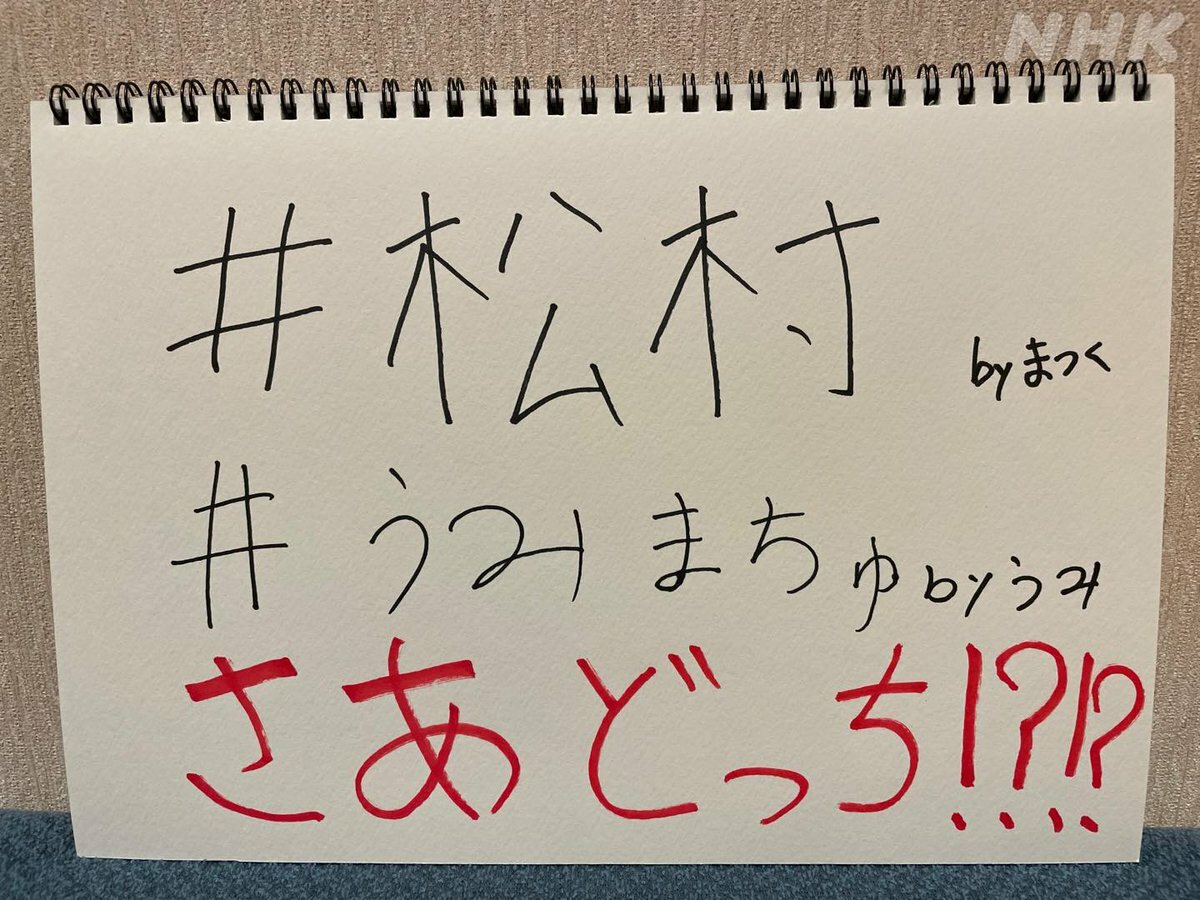 NHK
#松村 byまつく
#うみまちゅ byうみ
さあどっち!?!?